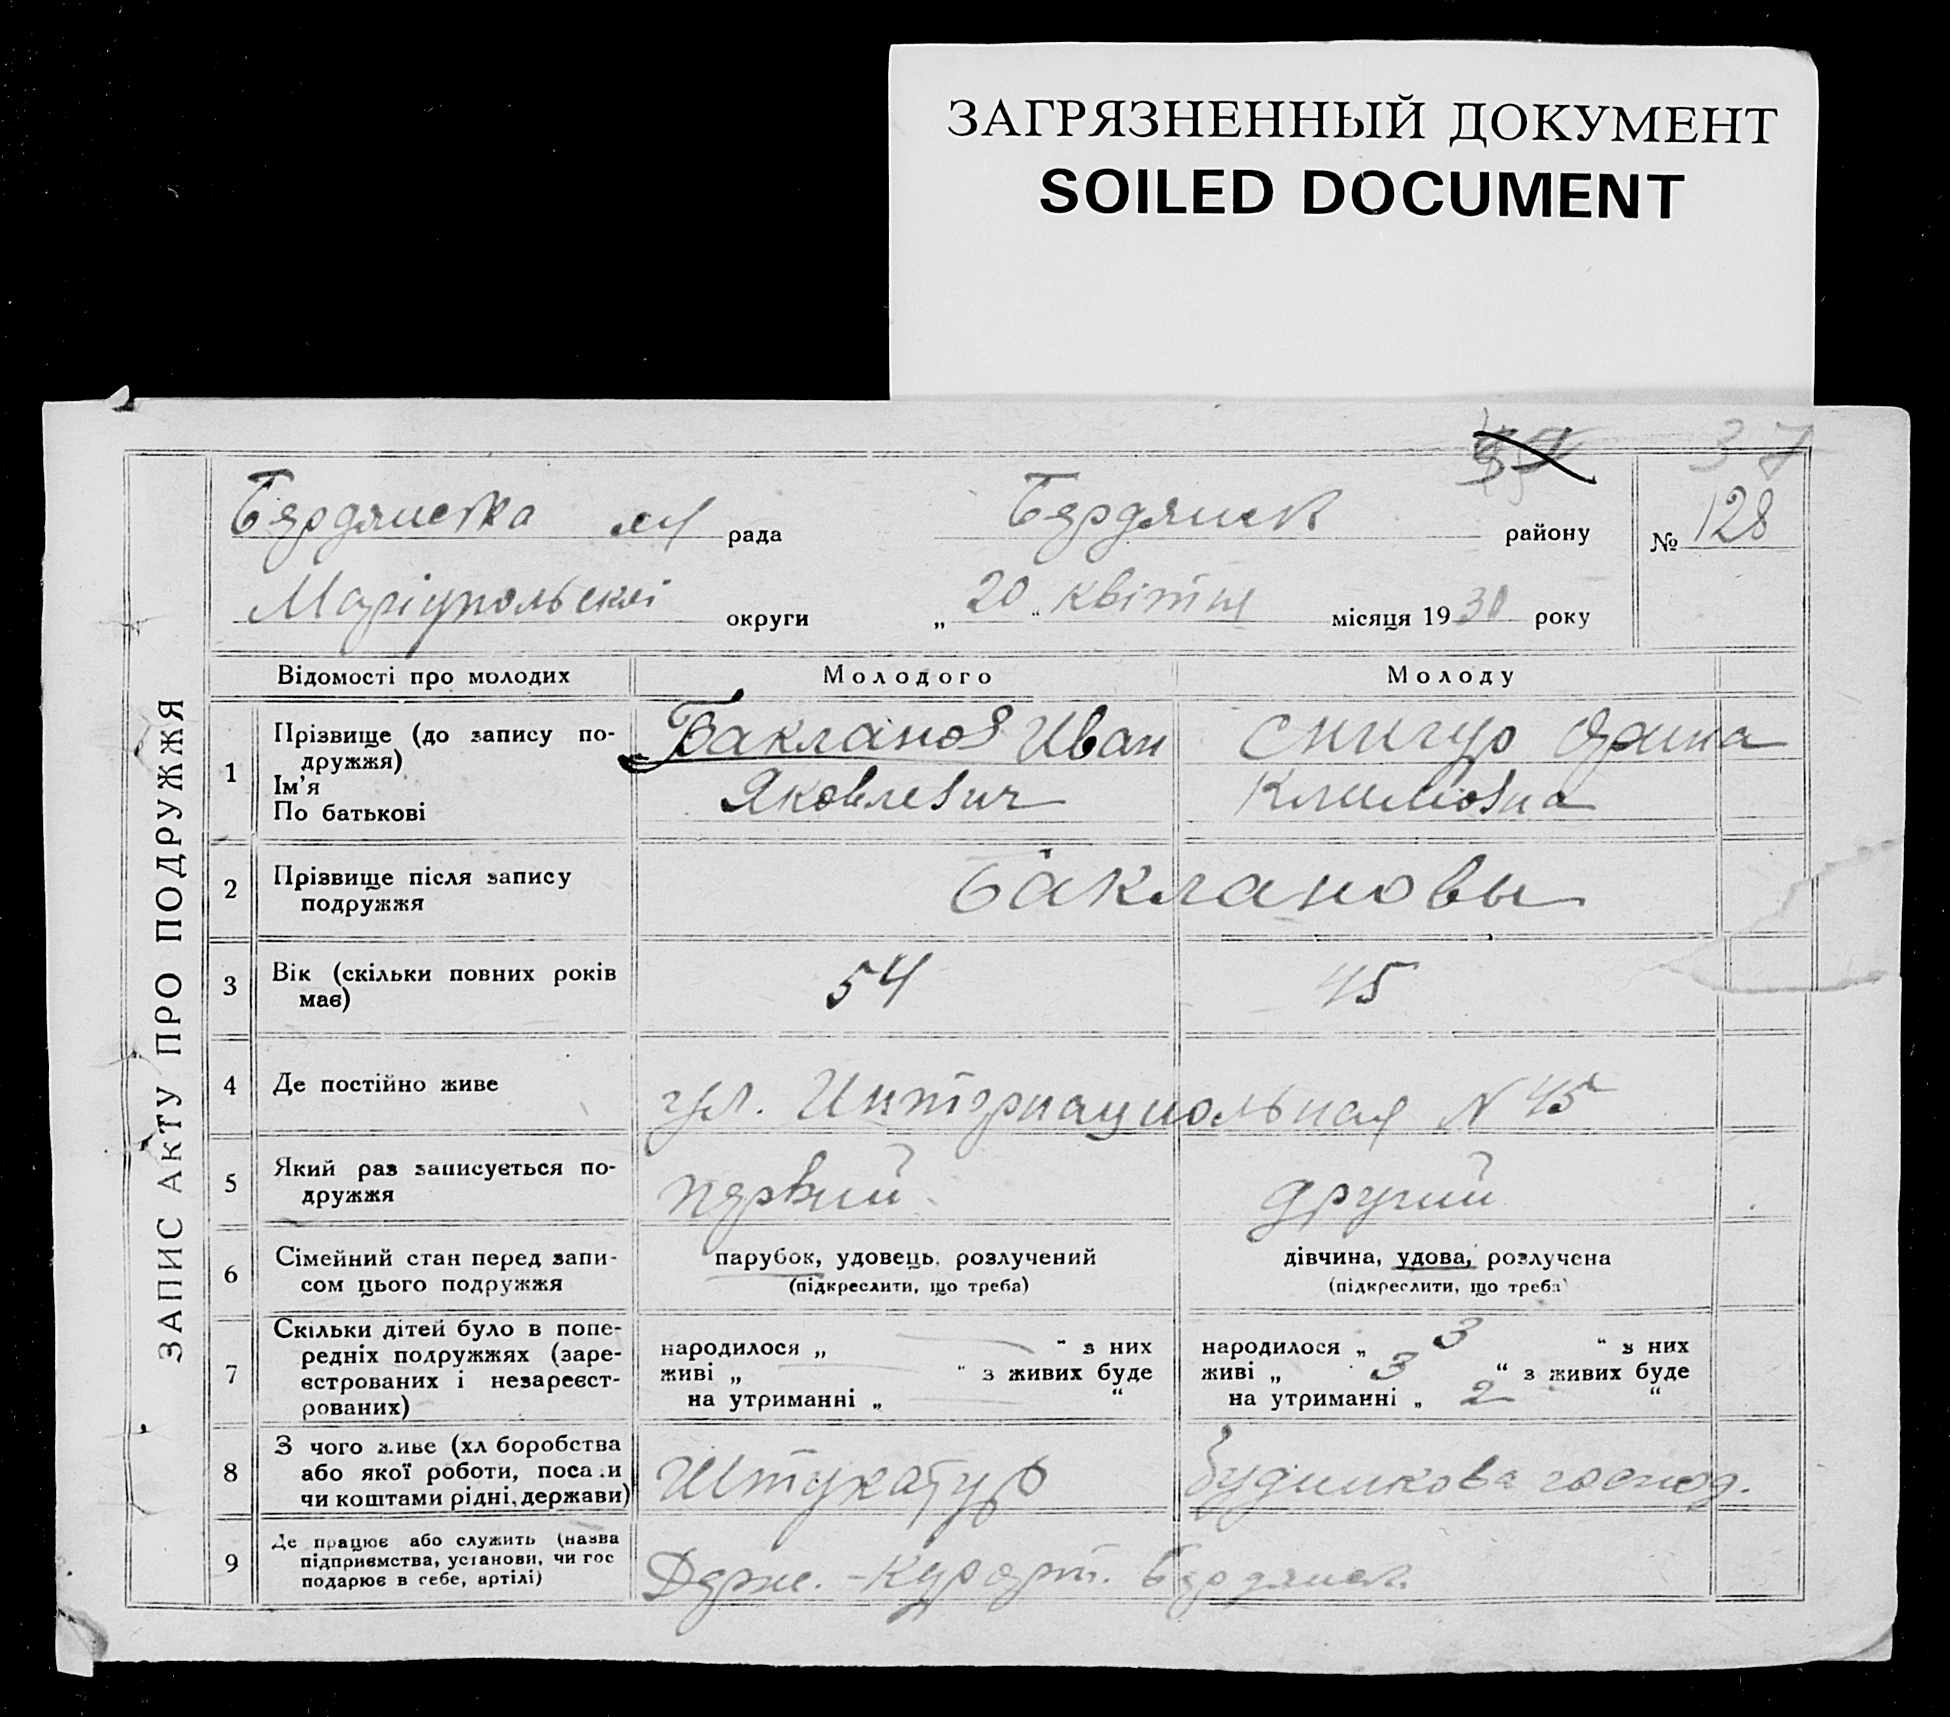 ЗАГРЯЗНЕННЫЙ ДОКУМЕНТ
SOILED DOCUMENT
37
Бердянська м рада Бердянск району № 128
Маріупольскої округи „ 20 " квітня місяця 1930 року
ЗАПИС АКТУ ПРО ПОДРУЖЖЯ
Відомості про молодих Молодого Молоду
1 Прізвище (до запису по-
дружжя)
Ім'я
По батькові
Бакланов Иван
Яковлевич
Снигур Ярина
Климовна
2 Прізвище після запису
подружжя
Баклановы
3 Вік (скільки повних років
має)
54 45
4 Де постійно живе
ул. Интернациональная N 45
5 Який раз записується по-
дружжя
первий другий
6 Сімейний стан перед запи-
сом цього подружжя
парубок, удовець, розлучений
(підкреслити, що треба)
дівчина, удова, розлучена
(підкреслити, що треба)
7 Скільки дітей було в попе-
редніх подружжях (заре-
єстрованих і незареєст-
рованих)
народилося „ — " з них
живі „ — " з живих буде
на утриманні „ — "
народилося „ 3 " з них
живі „ 3 " з живих буде
на утриманні „ 2 "
8 З чого живе (хл боробства
або якої роботи, поса и
чи коштами рідні, держави)
Штукатур
будинкова господ.
9 Де працює або служить (назва
підприємства, установи, чи гос
подарює в себе, артілі)
Держ. - Курорт. Бердянск.